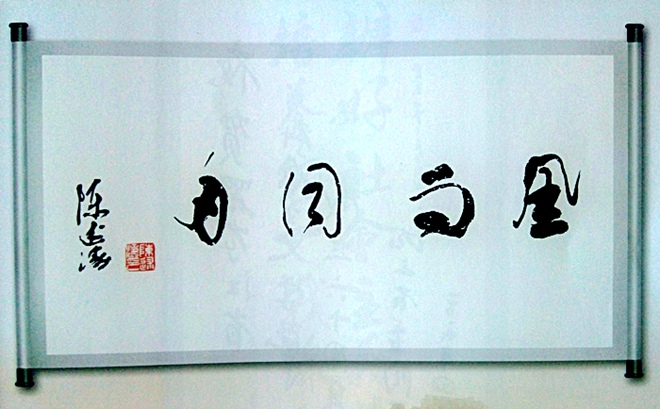 風雨同舟
陈